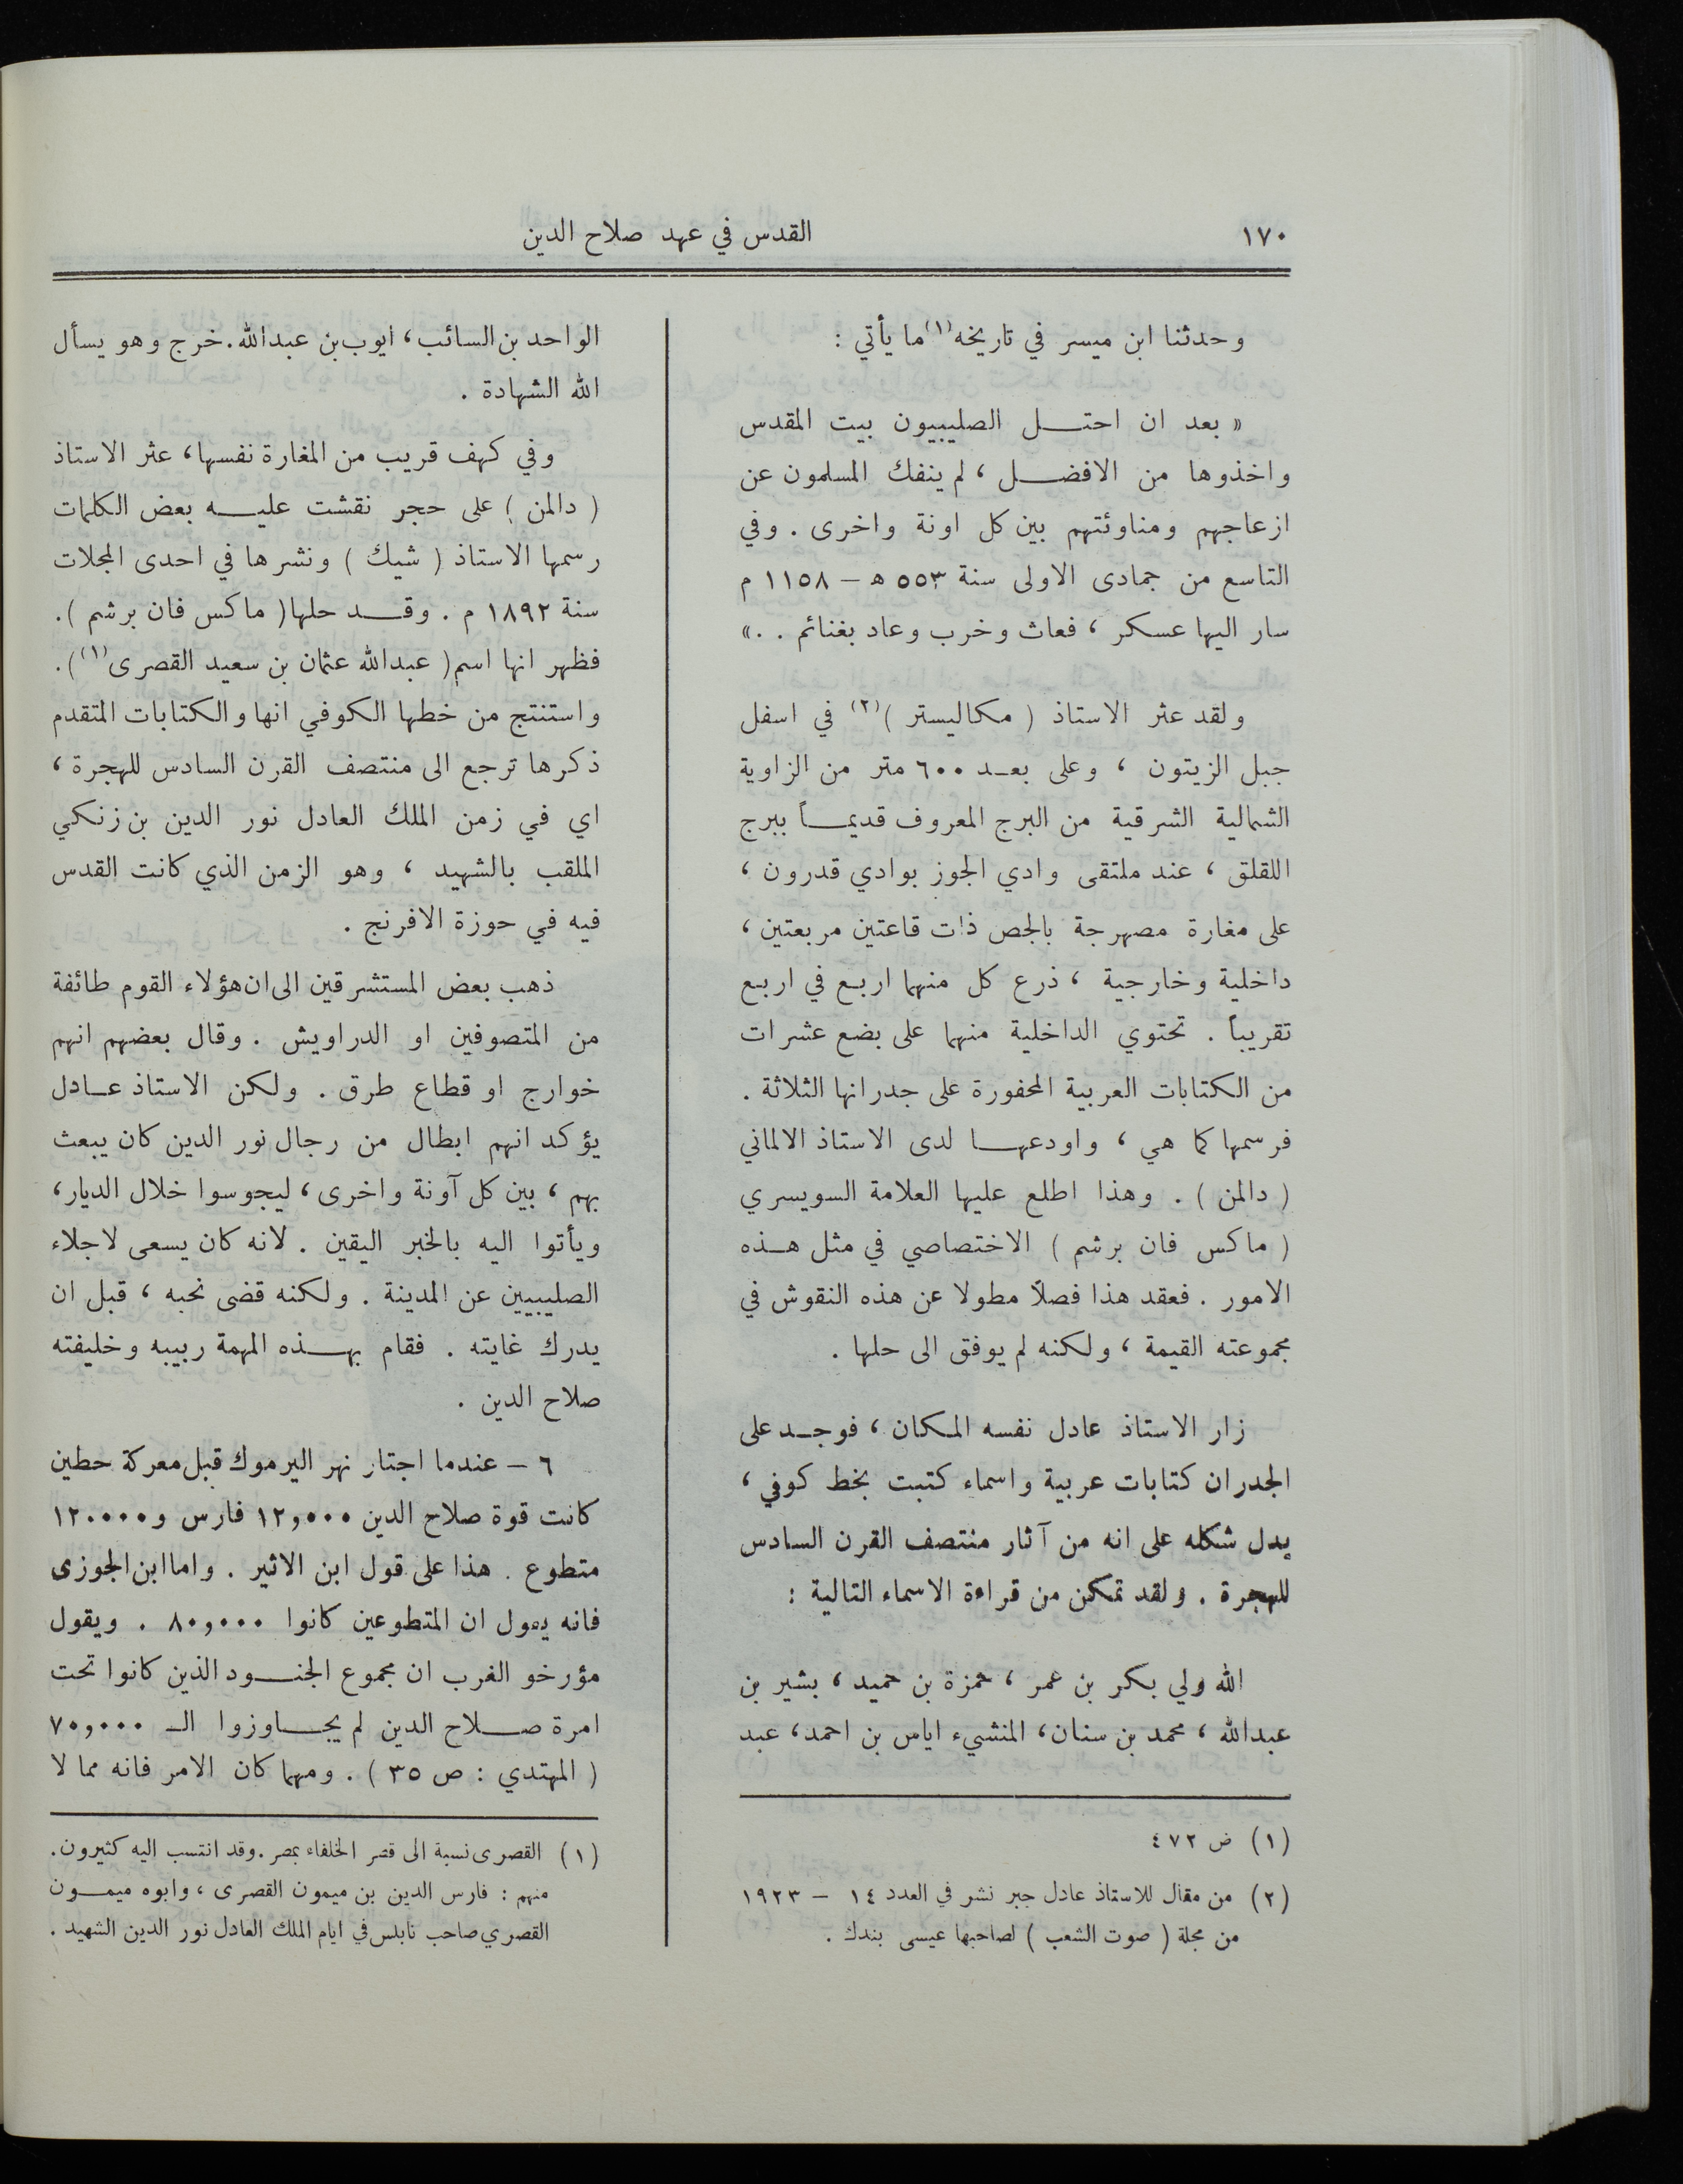 ١٧٠
القدس في عهد صلاح الدين
وحدثنا ابن ميسر في تاريخه(١) ما يأتي :
« بعد ان احتل الصليبيون بيت المقدس
واخذوها من الافضل ، لم ينفك المسلمون عن
ازعاجهم ومناوئتهم بين كل اونة واخرى . وفي
التاسع من جمادى الاولى سنة ٥٥٣ هـ – ١١٥٨ م
سار اليها عسكر ، فعاث وخرب وعاد بغنائم . .»
ولقد عثر الاستاذ ( مكاليستر )(٢) في اسفل
جبل الزيتون ، وعلى بعد ٦٠٠ متر من الزاوية
الشمالية الشرقية من البرج المعروف قديماً ببرج
اللقلق ، عند ملتقى وادي الجوز بوادي قدرون ،
على مغارة مصهرجة بالجص ذات قاعتين مربعتين ،
داخلية وخارجية ، ذرع كل منهما اربع في اربع
تقريباً . تحتوي الداخلية منهما على بضع عشرات
من الكتابات العربية المحفورة على جدرانها الثلاثة .
فرسمها كما هي ، واودعها لدى الاستاذ الالماني
( دالمن ) . وهذا اطلع عليها العلامة السويسري
( ماكس فان برشم ) الاختصاصي في مثل هذه
الامور . فعقد هذا فصلاً مطولا عن هذه النقوش في
مجموعته القيمة ، ولكنه لم يوفق الى حلها .
زار الاستاذ عادل نفسه المكان ، فوجد على
الجدران كتابات عربية واسماء كتبت بخط كوفي ،
يدل شكله على انه من آثار منتصف القرن السادس
للهجرة . ولقد تمكن من قراءة الاسماء التالية :
الله ولي بكر بن عمر ، حمزة بن حميد ، بشير بن
عبدالله ، محمد بن سنان، المنشيء اياس بن احمد، عبد
(١) ض ٤٧٢
(٢) من مقال للاستاذ عادل جبر نشر في العدد ١٤ – ١٩٢٣
من مجلة ( صوت الشعب ) لصاحبها عيسى بندك .
الواحد بن السائب، ايوب بن عبدالله. خرج وهو يسأل
الله الشهادة .
وفي كهف قريب من المغارة نفسها، عثر الاستاذ
( دالمن ) على حجر نقشت عليه بعض الكلمات
رسمها الاستاذ ( شيك ) ونشرها في احدى المجلات
سنة ١٨٩٢ م . وقد حلها ( ماكس فان برشم ).
فظهر انها اسم ( عبدالله عثمان بن سعيد القصرى(١)).
واستنتج من خطها الكوفي انها والكتابات المتقدم
ذكرها ترجع الى منتصف القرن السادس للهجرة ،
اي في زمن الملك العادل نور الدين بن زنكي
الملقب بالشهيد ، وهو الزمن الذي كانت القدس
فيه في حوزة الافرنج .
ذهب بعض المستشرقين الى ان هؤلاء القوم طائفة
من المتصوفين او الدراويش . وقال بعضهم انهم
خوارج او قطاع طرق . ولكن الاستاذ عادل
يؤكد انهم ابطال من رجال نور الدين كان يبعث
بهم ، بين كل آونة واخرى ، ليجوسوا خلال الديار،
ويأتوا اليه بالخبر اليقين . لانه كان يسعى لاجلاء
الصليبيين عن المدينة . ولكنه قضى نحبه ، قبل ان
يدرك غايته . فقام بهذه المهمة ربيبه وخليفته
صلاح الدين .
٦ – عندما اجتاز نهر اليرموك قبل معركة حطين
كانت قوة صلاح الدين ١٢,٠٠٠ فارس و١٢٠٠٠٠
متطوع . هذا على قول ابن الاثير . واما ابن الجوزى
فانه يقول ان المتطوعين كانوا ٨٠,٠٠٠ . ويقول
مؤرخو الغرب ان مجموع الجنود الذين كانوا تحت
امرة صلاح الدين لم يجاوزوا الـ ٧٠,٠٠٠
( المهتدي : ص ٣٥ ) . ومهما كان الامر فانه مما لا
(١) القصرى نسبة الى قصر الخلفاء بمصر . وقد انتسب اليه كثيرون.
منهم : فارس الدين بن ميمون القصرى ، وابوه ميمون
القصري صاحب نابلس في ايام الملك العادل نور الدين الشهيد .